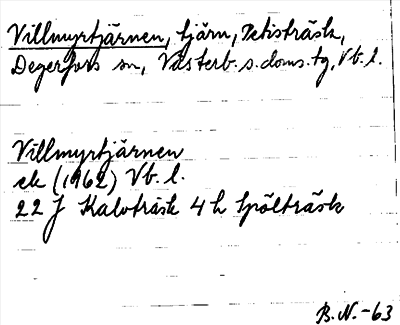 Villmyrtjärnen, tjärn, Petisträsk,
Degerfors sn, Västerb. s. doms. tg, Vb. l.
Villmyrtjärnen
ek (1962) Vb. l.
22 J Kalvträsk 4 h Spölträsk
B. N. -63